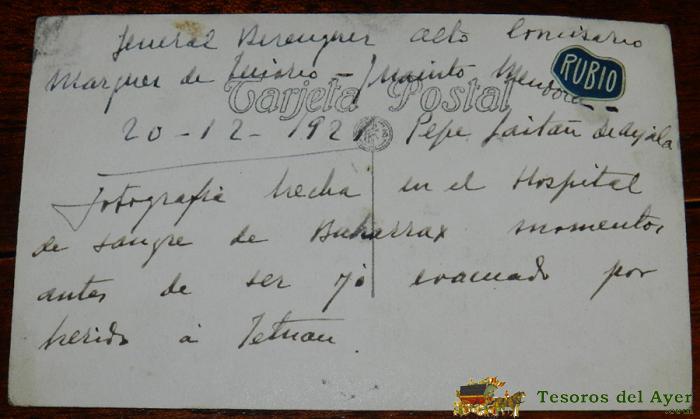 General Berenguer alto Comisario
Marques de - Jacinto
RUBIO
Tarjeta Postal
20-12-1921 Pepe Gaitan de Ayala
Fotografia hecha en el Hospital
de sangre de Buharrax momentos
antes de ser yó evacuado por
herido á Tetuan.
Tesoros del Ayer